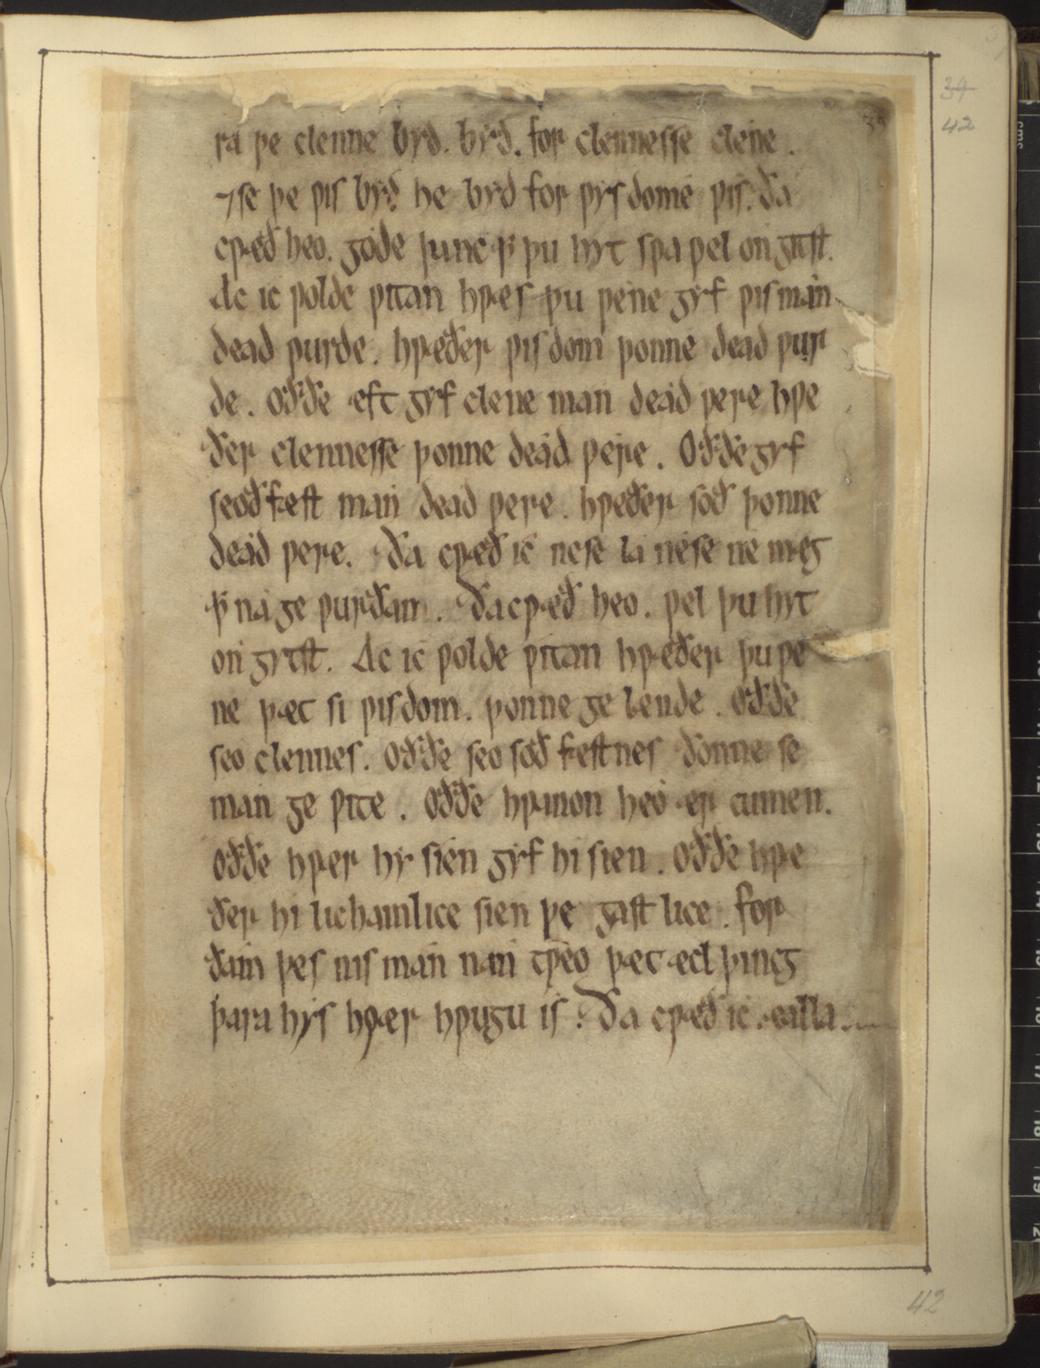 ra þe clenne byð. byð. for clennesse clene.
⁊ se þe ƿis byð he byð for ƿysdome ƿis. ða
cƿæð heo. gode þunc ꝥ þu hyt sƿa ƿel ongitst.
Ac ic ƿolde ƿitan hƿæs þu ƿene gyf ƿis man
dead ƿurde. hƿæðer ƿisdom þonne dead ƿur
de. Oððe eft gyf clene man dead ƿere hƿe
ðer clennesse þonne dead ƿere. Oððe gyf
seoðfæst man dead ƿere. hƿeðer soð þonne
dead ƿere. ða cƿæð ic nese la nese ne mæg
ꝥ na geƿurðam. ða cƿæð heo. ƿel þu hyt
ongytst. Ac ic ƿolde ƿitan hƿæðer þu ƿe
ne þæt si ƿisdom. þonne ge lende. Oððe
seo clennes. Oððe seo soðfæstnes ðonne se
man ge ƿite. Oððe hƿanon heo ær cumen.
Oððe hƿer hy sien gyf hi sien. Oððe hƿe
ðer hi lichamlice sien þe gastlice. for
ðam þes nis man nan tƿeo þæt ælþincg
þara hys hƿær hƿugu is. Ða cƿæð ic. ealla
38
34
42
42